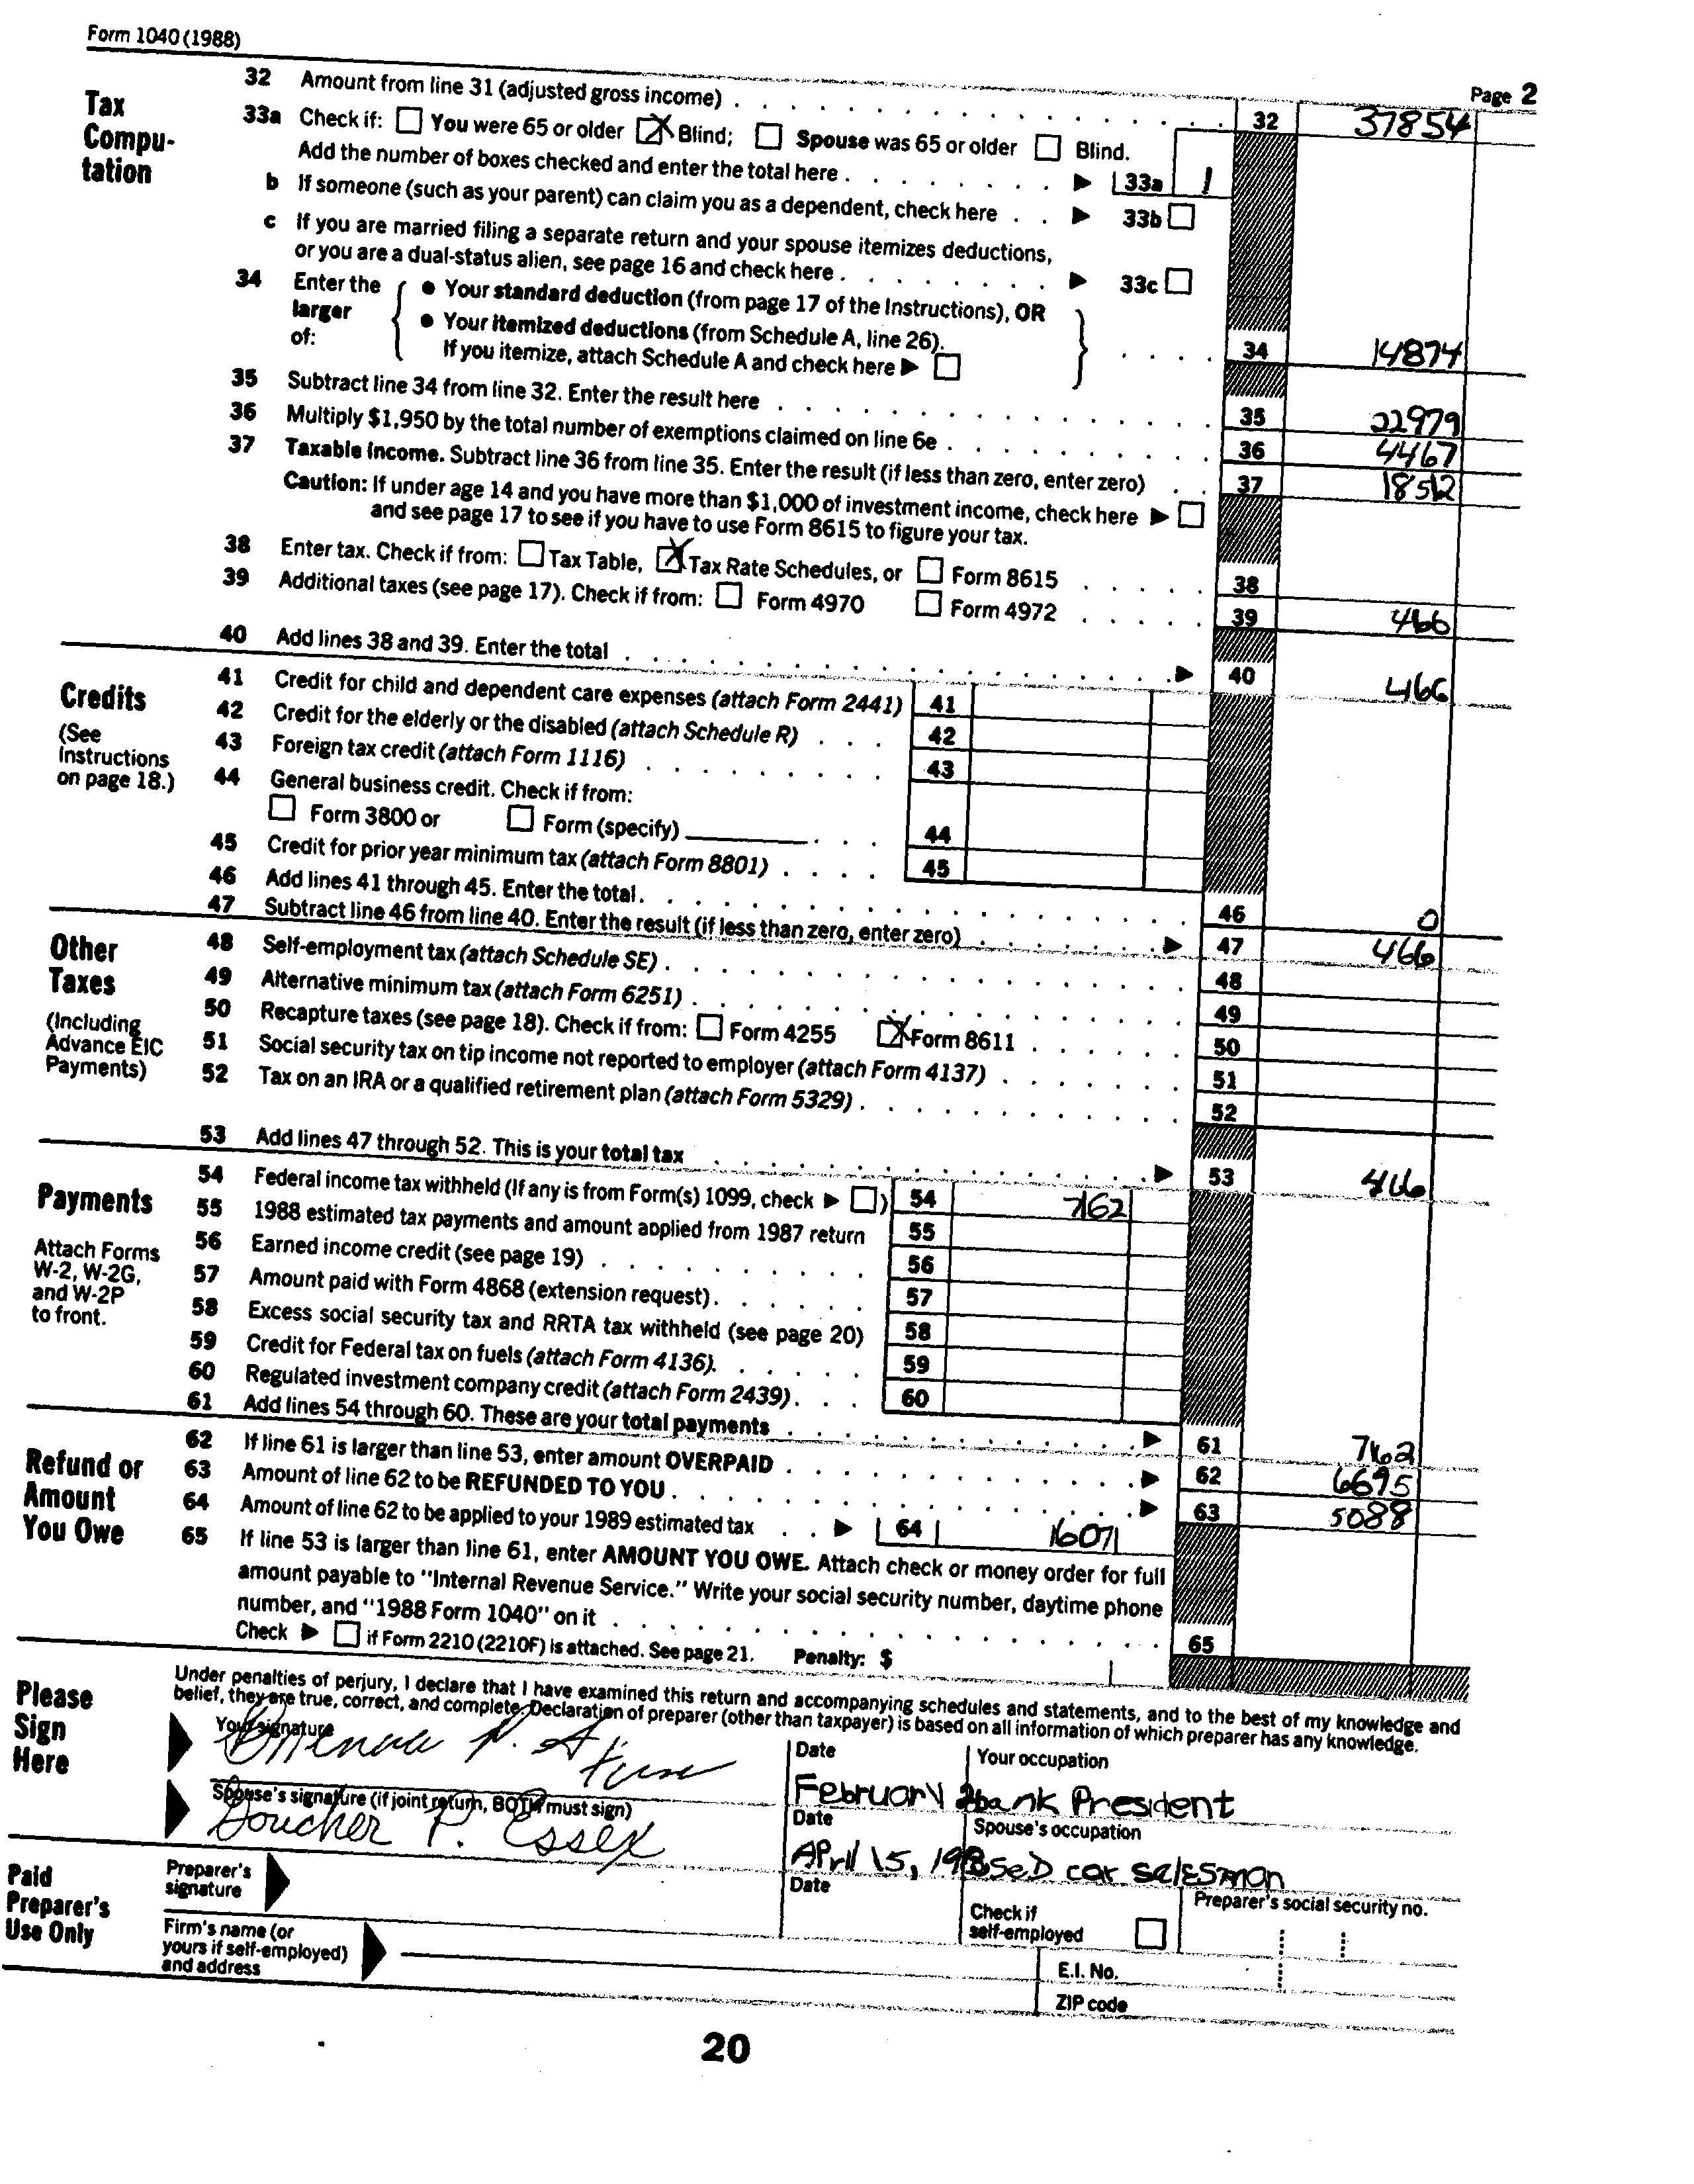 Form 1040 (1988)
Page 2
Tax Compu-tation
32 Amount from line 31 (adjusted gross income) 32 37854
33a Check if: You were 65 or older Blind; Spouse was 65 or older Blind.
Add the number of boxes checked and enter the total here 33a 1
b If someone (such as your parent) can claim you as a dependent, check here 33b
c If you are married filing a separate return and your spouse itemizes deductions,
or you are a dual-status alien, see page 16 and check here 33c
34 Enter the larger of:
• Your standard deduction (from page 17 of the Instructions), OR
• Your itemized deductions (from Schedule A, line 26).
If you itemize, attach Schedule A and check here 34 14874
35 Subtract line 34 from line 32. Enter the result here 35 22979
36 Multiply $1,950 by the total number of exemptions claimed on line 6e 36 4467
37 Taxable income. Subtract line 36 from line 35. Enter the result (if less than zero, enter zero) 37 18512
Caution: If under age 14 and you have more than $1,000 of investment income, check here
and see page 17 to see if you have to use Form 8615 to figure your tax.
38 Enter tax. Check if from: Tax Table, Tax Rate Schedules, or Form 8615 38
39 Additional taxes (see page 17). Check if from: Form 4970 Form 4972 39 466
40 Add lines 38 and 39. Enter the total 40 466
Credits
(See Instructions on page 18.)
41 Credit for child and dependent care expenses (attach Form 2441) 41
42 Credit for the elderly or the disabled (attach Schedule R) 42
43 Foreign tax credit (attach Form 1116) 43
44 General business credit. Check if from:
Form 3800 or Form (specify) 44
45 Credit for prior year minimum tax (attach Form 8801) 45
46 Add lines 41 through 45. Enter the total. 46 0
47 Subtract line 46 from line 40. Enter the result (if less than zero, enter zero) 47 466
Other Taxes
(Including Advance EIC Payments)
48 Self-employment tax (attach Schedule SE) 48
49 Alternative minimum tax (attach Form 6251) 49
50 Recapture taxes (see page 18). Check if from: Form 4255 Form 8611 50
51 Social security tax on tip income not reported to employer (attach Form 4137) 51
52 Tax on an IRA or a qualified retirement plan (attach Form 5329) 52
53 Add lines 47 through 52. This is your total tax 53 466
Payments
Attach Forms W-2, W-2G, and W-2P to front.
54 Federal income tax withheld (If any is from Form(s) 1099, check ) 54 7162
55 1988 estimated tax payments and amount applied from 1987 return 55
56 Earned income credit (see page 19) 56
57 Amount paid with Form 4868 (extension request) 57
58 Excess social security tax and RRTA tax withheld (see page 20) 58
59 Credit for Federal tax on fuels (attach Form 4136). 59
60 Regulated investment company credit (attach Form 2439) 60
61 Add lines 54 through 60. These are your total payments 61 7162
Refund or Amount You Owe
62 If line 61 is larger than line 53, enter amount OVERPAID 62 6695
63 Amount of line 62 to be REFUNDED TO YOU 63 5088
64 Amount of line 62 to be applied to your 1989 estimated tax 64 1607
65 If line 53 is larger than line 61, enter AMOUNT YOU OWE. Attach check or money order for full
amount payable to "Internal Revenue Service." Write your social security number, daytime phone
number, and "1988 Form 1040" on it 65
Check if Form 2210 (2210F) is attached. See page 21. Penalty: $
Please Sign Here
Under penalties of perjury, I declare that I have examined this return and accompanying schedules and statements, and to the best of my knowledge and
belief, they are true, correct, and complete. Declaration of preparer (other than taxpayer) is based on all information of which preparer has any knowledge.
Your signature
Date
Your occupation
February 2 bank President
Spouse's signature (if joint return, BOTH must sign)
Boucher P. Essex
Date
Spouse's occupation
April 15, used car salesman
Paid Preparer's Use Only
Preparer's signature
Date
Check if self-employed
Preparer's social security no.
Firm's name (or yours if self-employed) and address
E.I. No.
ZIP code
20